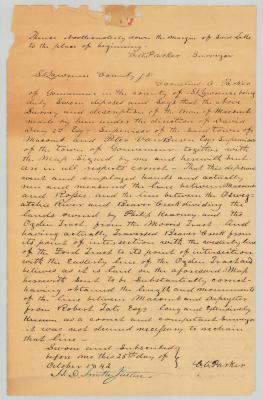 Thence Northeasterly down the Margin of said Lake
to the place of beginning.
C. A. Parker Surveyor
St Lawrence County, ss.
Cornelius A. Parker
of Gouverneur in the county of St Lawrence being
duly Sworn deposes and Says that the above
Survey and description of the town of Macomb
made by him under the direction of David
Day 2d Esqr Supervisor of the Said town of
Macomb and Peter Van Buren Esqr Supervisor
of the town of Gouverneur together with
the Map Signed by me and herewith Sent
are in all respects correct. That this deponent
went and employed hands and actually
run and measured the line between Macomb
and Rossie and the line between the Oswegatchie
River and Beaver Creek dividing the
lands owned by Philip Kearney and the
Ogden Tract from the Morris Tract and
having actually Traversed Beaver Creek from
its point of intersection with the westerly line
of the Ford Tract to its point of intersection
with the Easterly line of the Ogden Tract and
believes as it is laid on the aforesaid Map
herewith Sent to be Substantially correct
having obtained the length and monuments
of the line between Macomb and Depeyster
from Robert Tate Esqr long and
known as a correct and competent Surveyor
it was not deemed necessary to rechain
that line —
Sworn and Subscribed
before me this 25th day of
October 1842
C. A. Parker
H. D. Smith Justice